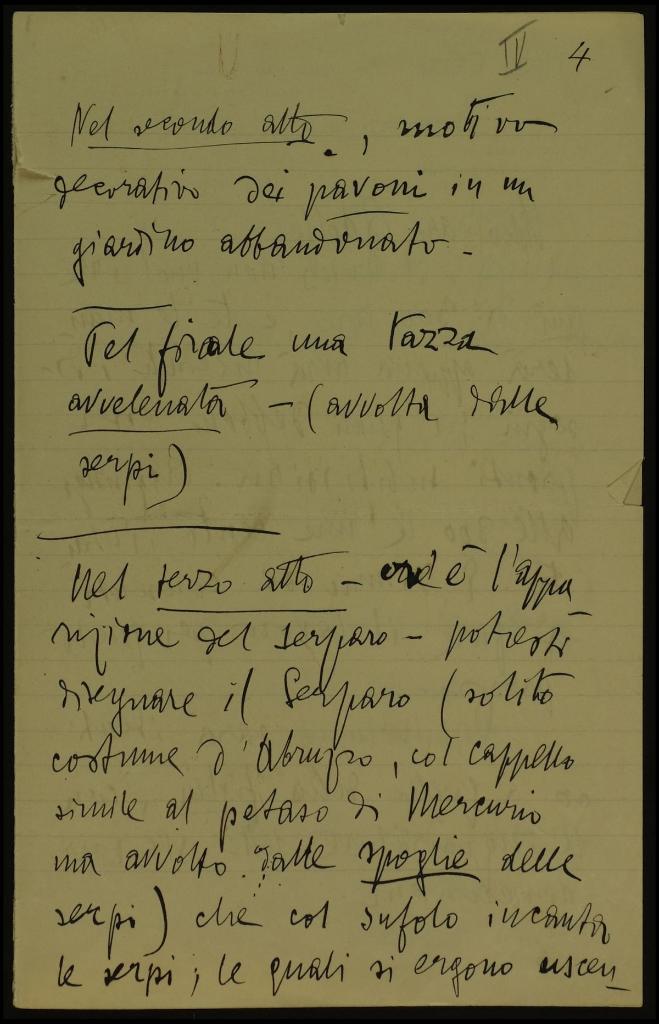 IV 4
Nel secondo atto, motivo
decorativo dei pavoni in un
giardino abbandonato -
Nel finale una tazza
avvelenata - (avvolta dalle
serpi)
Nel terzo atto - ov'è l'appa
rizione del serparo - potresti
disegnare il Serparo (solito
costume d'Abruzzo, col cappello
simile al petaso di Mercurio
ma avvolto dalle spoglie delle
serpi) che col sufolo incanta
le serpi; le quali si ergono uscen